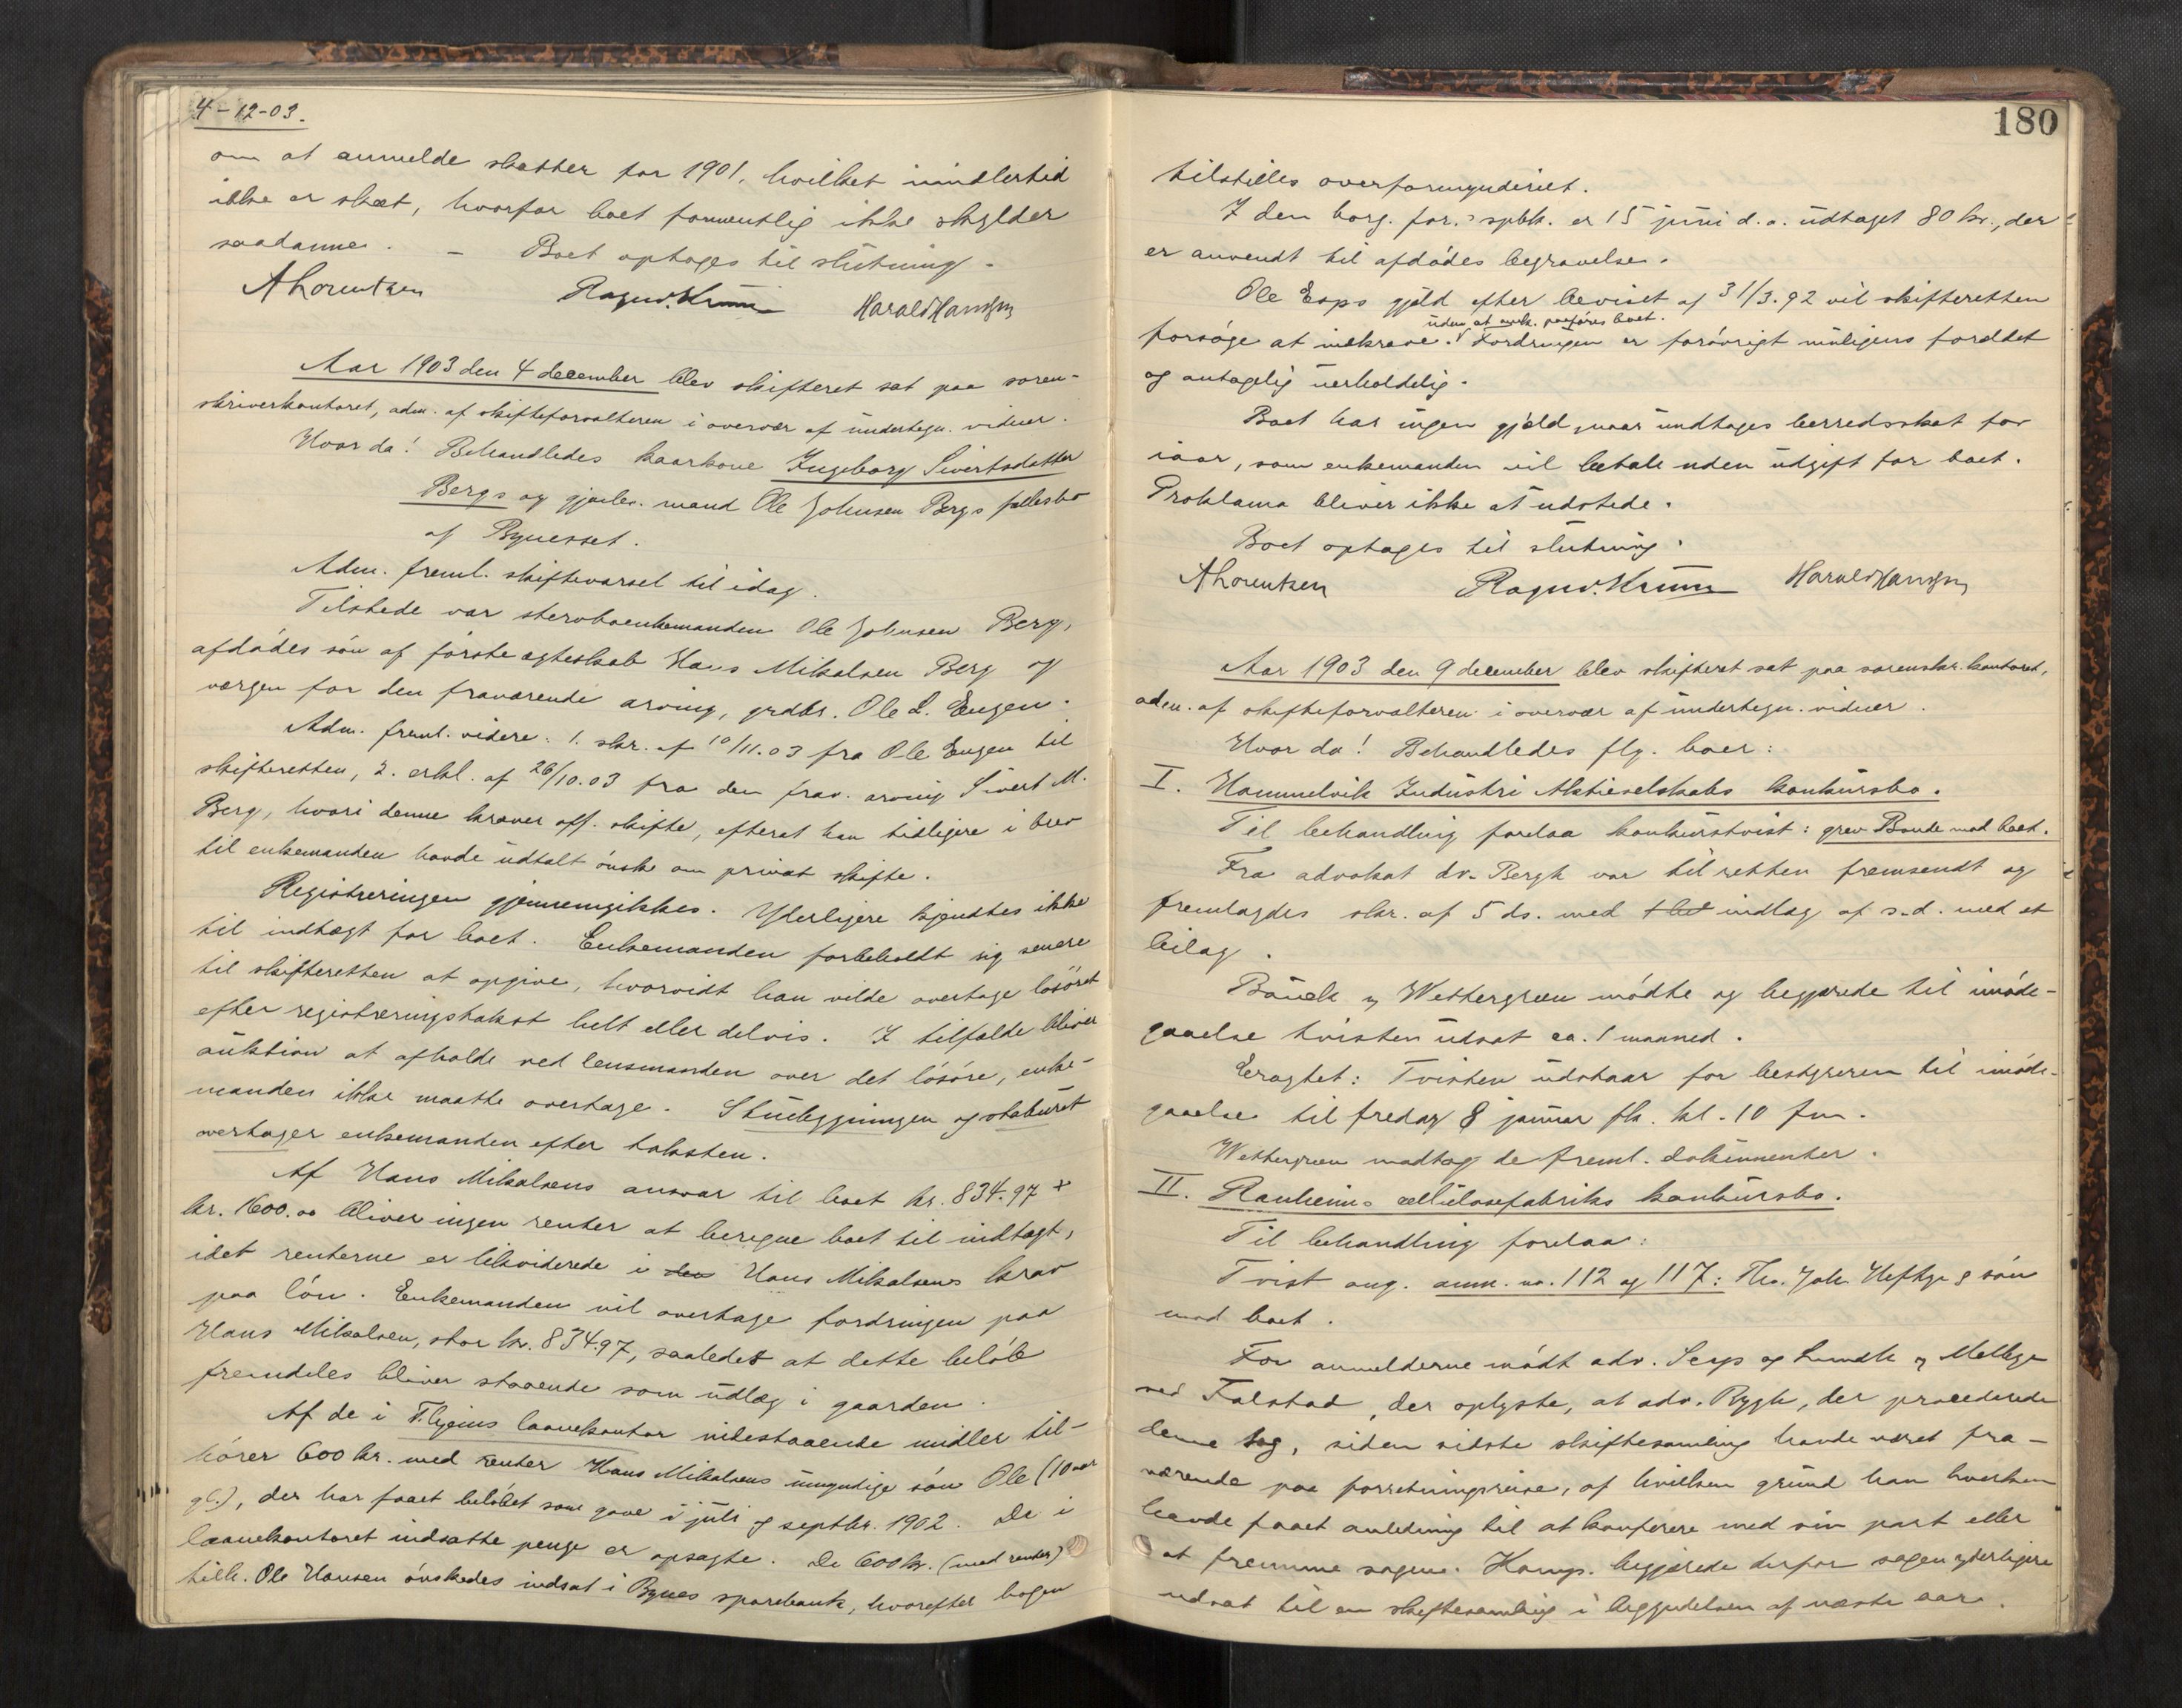 4-12-03.
om at anmelde skatter for 1901, hvilket imidlertid
ikke er skeet, hvorfor boet formentlig ikke skylder
saadanne. - Boet optages til slutning.
ALorentzen Ragnv. Krum Harald Hansen
Aar 1903 den 4 december blev skifteret sat paa soren-
skriverkontoret, adm. af skifteforvalteren i overvær af undertegn. vidner.
Hvor da! Behandledes kaarkone Ingeborg Sivertsdatter
Bergs og gjenlev. mand Ole Johnsen Bergs fællesbo
af Bynesset.
Adm. freml. skiftevarsel til idag.
Tilstede var stervboenkemanden Ole Johnsen Berg,
afdødes søn af første ægteskab Hans Mikalsen Berg og
værgen for den fraværende arving, grdbr. Ole L. Engen.
Adm. freml. videre: 1. skr. af 10/11.03 fra Ole Engen til
skifteretten, 2. erkl. af 26/10.03 fra den frav. arving Sivert M.
Berg, hvori denne kræver off. skifte, efterat han tidligere i brev
til enkemanden havde udtalt ønske om privat skifte.
Registreringen gjennemgikkes. Yderligere kjendtes ikke
til indtægt for boet. Enkemanden forbeholdt sig senere
til skifteretten at opgive, hvorvidt han vilde overtage løsøret
efter registreringstakst helt eller delvis. I tilfælde bliver
auktion at afholde ved lensmanden over det løsøre, enke-
manden ikke maatte overtage. Stuebygningen og staburet
overtager enkemanden efter taksten.
Af Hans Mikalsens ansvar til boet kr. 834.97 +
kr. 1600.00 bliver ingen renter at beregne boet til indtægt,
idet renterne er likviderede i den Hans Mikalsens krav
paa løn. Enkemanden vil overtage fordringen paa
Hans Mikalsen, stor kr. 834.97, saaledes at dette beløb
fremdeles bliver staaende som udlæg i gaarden.
Af de i T.hjems laanekontor indestaaende midler til-
hører 600 kr. med renter Hans Mikalsens umyndige søn Ole (10 aar
gl.), der har faaet beløbet som gave i juli og septbr. 1902. De i
laanekontoret indsatte penge er opsagte. De 600 kr. (med renter)
tilh. Ole Hansen ønskedes indsat i Bynes sparebank, hvorefter bogen
180
tilstilles overformynderiet.
I den borg. for.s spbk. er 15 juni d.a. udtaget 80 kr., der
er anvendt til afdødes begravelse.
Ole Esps gjæld efter beviset af 31/3.92 vil skifteretten
uden at omk. paaføres boet.
forsøge at inkræve. Fordringen er forøvrigt muligens forældet
og antagelig uerholdelig.
Boet har ingen gjæld, naar undtages herredsskat for
iaar, som enkemanden vil betale uden udgift for boet.
Proklama bliver ikke at udstede.
Boet optages til slutning.
ALorentzen Ragnv. Krum Harald Hansen
Aar 1903 den 9 december blev skifteret sat paa sorenskr. kontoret,
adm. af skifteforvalteren i overvær af undertegn. vidner.
Hvor da! Behandledes flg. boer:
I. Hommelvik Industri Aktieselskabs konkursbo.
Til behandling forelaa konkurstvist: grev Bonde mod boet.
Fra advokat dr. Bergh var til retten fremsendt og
fremlagdes skr. af 5 ds. med indlæg af s.d. med et
bilag.
Bauck og Wettergreen mødte og begjærede til imøde-
gaaelse tvisten udsat ca. 1 maaned.
Eragtet: Tvisten udstaar for bestyreren til imøde-
gaaelse til fredag 8 januar flk. kl. 10 fm.
Wettergreen modtog de freml. dokumenter.
II. Ranheims cellulosefabriks konkursbo.
Til behandling forelaa:
Tvist ang. anm. no. 112 og 117: Tho. Joh. Heftye & søn
mod boet.
For anmelderne mødt adv. og Lundh og Mellbye
ved Falstad, der oplyste, at adv. Rygh, der procederede
denne sag, siden sidste skiftesamling havde været fra-
værende paa forretningsreise, af hvilken grund han hverken
havde faaet anledning til at konferere med sin part eller
at fremme sagen. Komp. begjærede derfor sagen yderligere
udsat til en skiftesamling i begyndelsen af næste aar.